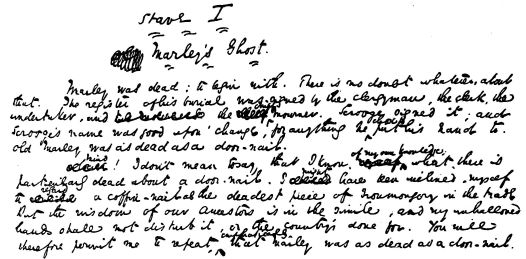 Stave I
Marley's Ghost.
Marley was dead: to begin with. There is no doubt whatever, about
that. The register of his burial was signed by the clergyman, the clerk, the
undertaker, and the chief mourner. Scrooge signed it; and
Scrooge's name was good upon 'change, for anything he put his hand to.
old Marley was as dead as a door-nail.
Mind! I don't mean to say, that I know, of my own knowledge, what there is
particularly dead about a door-nail. I might have been inclined, myself
to a coffin-nail as the deadest piece of ironmongery in the trade
But the wisdom of our ancestors is in the simile, and my unhallowed
hands shall not disturb it, or the country's done for. You will
therefore permit me to repeat, emphatically, that Marley was as dead as a door-nail.